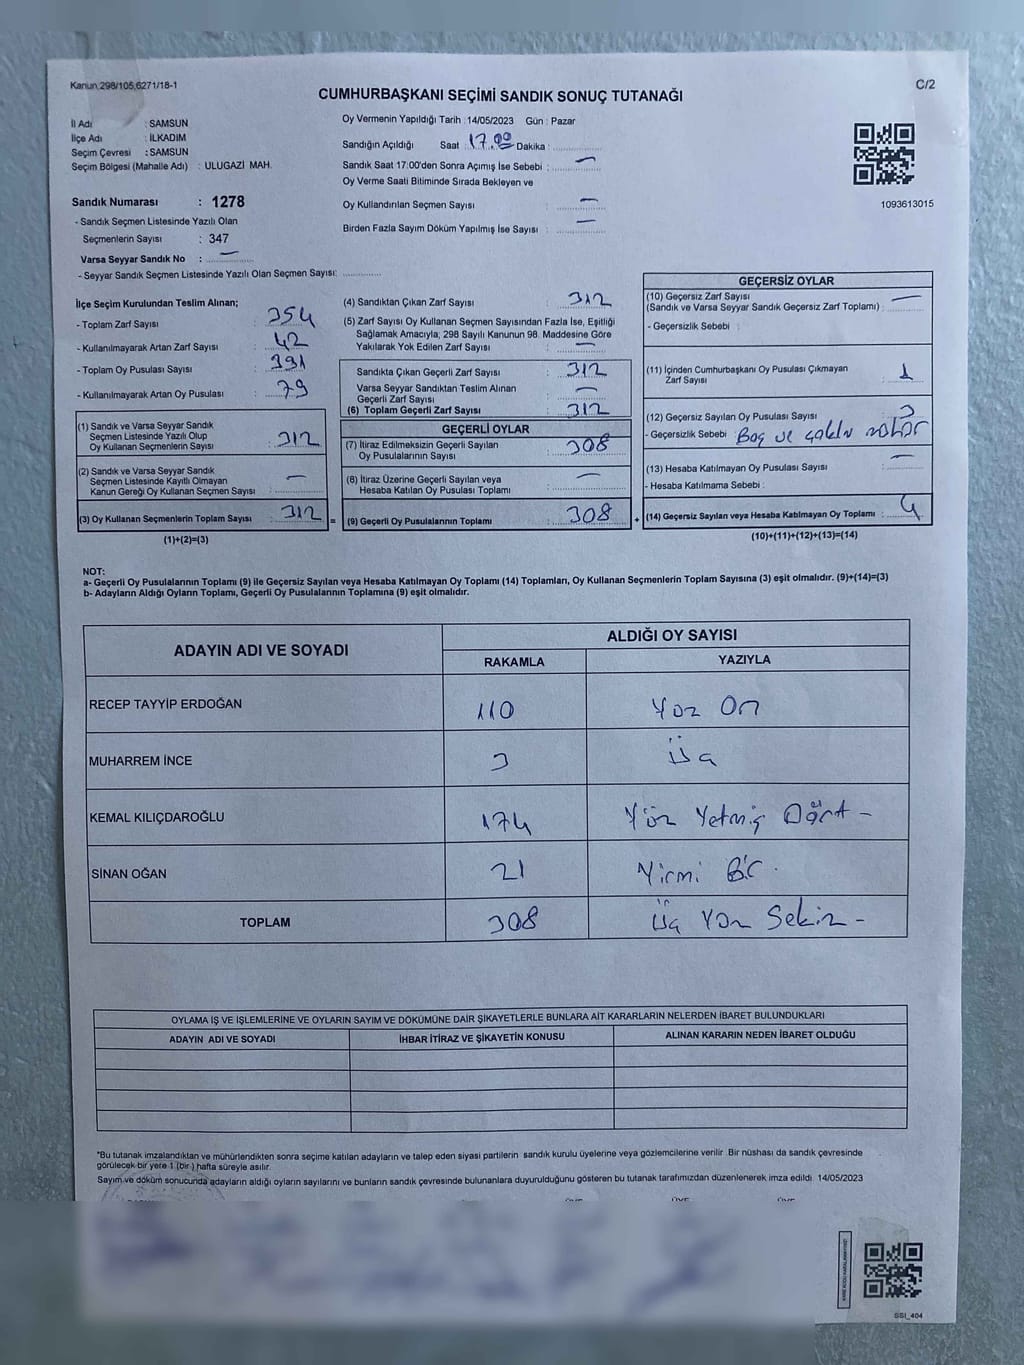 Kanun,298/105,6271/18-1
C/2
CUMHURBAŞKANI SEÇİMİ SANDIK SONUÇ TUTANAĞI
İl Adı : SAMSUN
İlçe Adı : İLKADIM
Seçim Çevresi : SAMSUN
Seçim Bölgesi (Mahalle Adı) : ULUGAZİ MAH.
Sandık Numarası : 1278
- Sandık Seçmen Listesinde Yazılı Olan
Seçmenlerin Sayısı : 347
Varsa Seyyar Sandık No : —
- Seyyar Sandık Seçmen Listesinde Yazılı Olan Seçmen Sayısı:
Oy Vermenin Yapıldığı Tarih :14/05/2023 Gün : Pazar
Sandığın Açıldığı Saat : 17.00 Dakika :
Sandık Saat 17:00'den Sonra Açımış İse Sebebi : —
Oy Verme Saati Bitiminde Sırada Bekleyen ve
Oy Kullandırılan Seçmen Sayısı : —
Birden Fazla Sayım Döküm Yapılmış İse Sayısı : —
1093613015
İlçe Seçim Kurulundan Teslim Alınan;
- Toplam Zarf Sayısı : 354
- Kullanılmayarak Artan Zarf Sayısı : 42
- Toplam Oy Pusulası Sayısı : 391
- Kullanılmayarak Artan Oy Pusulası : 79
(1) Sandık ve Varsa Seyyar Sandık
Seçmen Listesinde Yazılı Olup
Oy Kullanan Seçmenlerin Sayısı : 312
(2) Sandık ve Varsa Seyyar Sandık
Seçmen Listesinde Kayıtlı Olmayan
Kanun Gereği Oy Kullanan Seçmen Sayısı : —
(3) Oy Kullanan Seçmenlerin Toplam Sayısı : 312
(1)+(2)=(3)
=
(4) Sandıktan Çıkan Zarf Sayısı : 312
(5) Zarf Sayısı Oy Kullanan Seçmen Sayısından Fazla İse, Eşitliği
Sağlamak Amacıyla; 298 Sayılı Kanunun 98. Maddesine Göre
Yakılarak Yok Edilen Zarf Sayısı : —
Sandıkta Çıkan Geçerli Zarf Sayısı : 312
Varsa Seyyar Sandıktan Teslim Alınan
Geçerli Zarf Sayısı : —
(6) Toplam Geçerli Zarf Sayısı : 312
GEÇERLİ OYLAR
(7) İtiraz Edilmeksizin Geçerli Sayılan
Oy Pusulalarının Sayısı : 308
(8) İtiraz Üzerine Geçerli Sayılan veya
Hesaba Katılan Oy Pusulası Toplamı : —
(9) Geçerli Oy Pusulalarının Toplamı : 308
+
GEÇERSİZ OYLAR
(10) Geçersiz Zarf Sayısı
(Sandık ve Varsa Seyyar Sandık Geçersiz Zarf Toplamı) : —
- Geçersizlik Sebebi :
(11) İçinden Cumhurbaşkanı Oy Pusulası Çıkmayan
Zarf Sayısı : 1
(12) Geçersiz Sayılan Oy Pusulası Sayısı : 3
- Geçersizlik Sebebi : Boş ve
(13) Hesaba Katılmayan Oy Pusulası Sayısı : —
- Hesaba Katılmama Sebebi :
(14) Geçersiz Sayılan veya Hesaba Katılmayan Oy Toplamı : 4
(10)+(11)+(12)+(13)=(14)
NOT:
a- Geçerli Oy Pusulalarının Toplamı (9) ile Geçersiz Sayılan veya Hesaba Katılmayan Oy Toplamı (14) Toplamları, Oy Kullanan Seçmenlerin Toplam Sayısına (3) eşit olmalıdır. (9)+(14)=(3)
b- Adayların Aldığı Oyların Toplamı, Geçerli Oy Pusulalarının Toplamına (9) eşit olmalıdır.
ADAYIN ADI VE SOYADI
ALDIĞI OY SAYISI
RAKAMLA YAZIYLA
RECEP TAYYİP ERDOĞAN 110 Yüz On
MUHARREM İNCE 3 Üç
KEMAL KILIÇDAROĞLU 174 Yüz Yetmiş Dört –
SİNAN OĞAN 21 Yirmi Bir
TOPLAM 308 Üç Yüz Sekiz –
OYLAMA İŞ VE İŞLEMLERİNE VE OYLARIN SAYIM VE DÖKÜMÜNE DAİR ŞİKAYETLERLE BUNLARA AİT KARARLARIN NELERDEN İBARET BULUNDUKLARI
ADAYIN ADI VE SOYADI İHBAR İTİRAZ VE ŞİKAYETİN KONUSU ALINAN KARARIN NEDEN İBARET OLDUĞU
*Bu tutanak imzalandıktan ve mühürlendikten sonra seçime katılan adayların ve talep eden siyasi partilerin sandık kurulu üyelerine veya gözlemcilerine verilir .Bir nüshası da sandık çevresinde
görülecek bir yere 1 (bir ) hafta süreyle asılır.
Sayım ve döküm sonucunda adayların aldığı oyların sayılarını ve bunların sandık çevresinde bulunanlara duyurulduğunu gösteren bu tutanak tarafımızdan düzenlenerek imza edildi. 14/05/2023
SSI_404